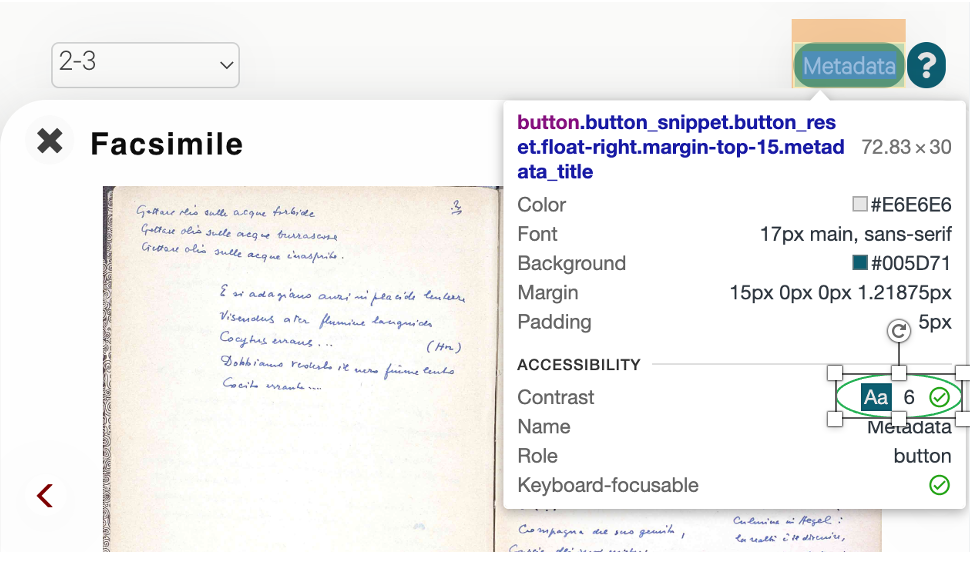 2-3
Metadata
?
Facsimile
button.button_snippet.button_res
et.float-right.margin-top-15.metad
ata_title
72.83 × 30
Color #E6E6E6
Font 17px main, sans-serif
Background #005D71
Margin 15px 0px 0px 1.21875px
Padding 5px
ACCESSIBILITY
Contrast Aa 6
Name Metadata
Role button
Keyboard-focusable
Gettare olio sulle acque torbide
Gettare olio sulle acque burrascose
Gettare olio sulle acque inasprite.
E si adagiano anzi placide
Visendus ater flumine languido
Cocytus errans ...
(Hor)
Dobbiamo vederlo il nero fiume lento
Cocito errante ...
Compagna del suo
Culmine in Hegel :